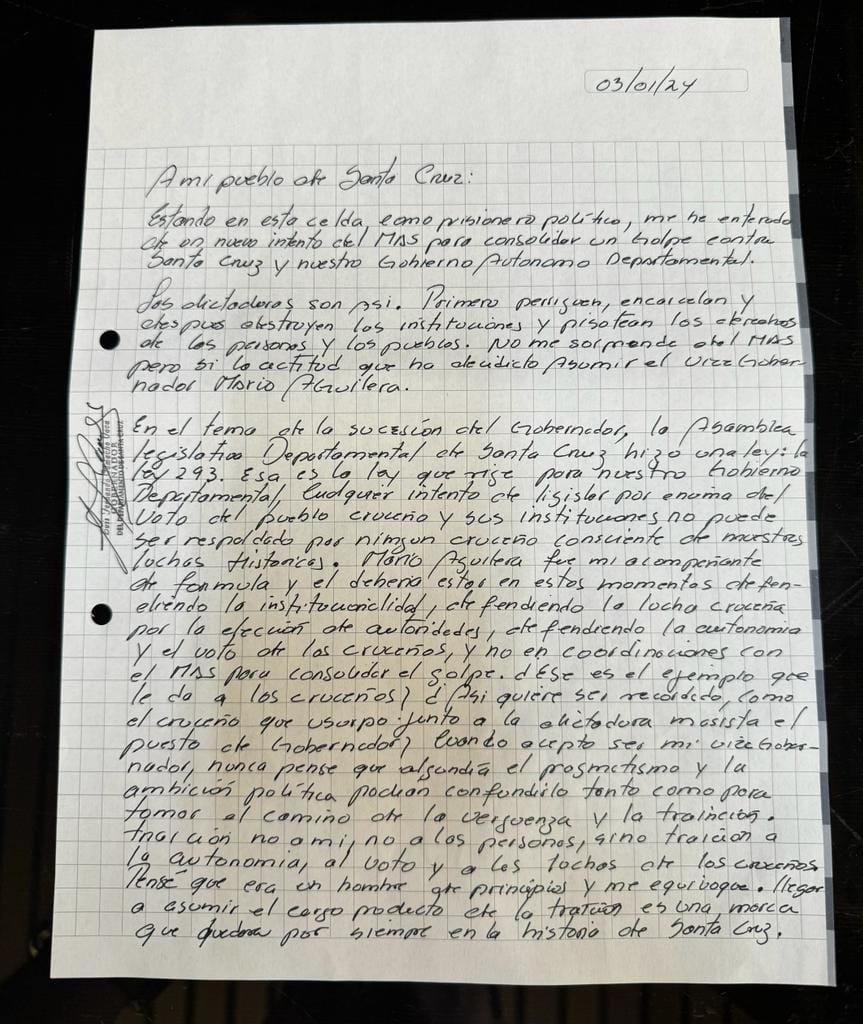 03/01/24
A mi pueblo de Santa Cruz:
Estando en esta celda, como prisionero político, me he enterado
de un nuevo intento del MAS para consolidar un Golpe contra
Santa Cruz y nuestro Gobierno Autonomo Departamental.
Las dictaduras son asi. Primero persiguen, encarcelan y
despues destruyen las instituciones y pisotean los derechos
de las personas y los pueblos. No me sorprende del MAS
pero si la actitud que ha decidido asumir el vice Gober-
nador Mario Aguilera.
En el tema de la sucesión del Gobernador, la Asamblea
legislativa Departamental de Santa Cruz hizo una ley: la
ley 293. Esa es la ley que rige para nuestro Gobierno
Departamental, Cualquier intento de ligislar por encima del
voto del pueblo cruceño y sus instituciones no puede
ser respaldado por ningun cruceño consciente de nuestras
luchas Historicas. Mario Aguilera fue mi acompañante
de formula y el deberia estar en estos momentos defen-
diendo la institucionalidad, defendiendo la lucha cruceña
por la elección de autoridades, defendiendo la autonomia
y el voto de los cruceños, y no en coordinaciones con
el MAS para consolidar el golpe. ¿Ese es el ejemplo que
le da a los cruceños? ¿Asi quiere ser recordado, como
el cruceño que usurpo junto a la dictadura masista el
puesto de Gobernador? Cuando acepto ser mi vice Gober-
nador, nunca pense que algun dia el pragmatismo y la
ambición política podian confundirlo tanto como para
tomar el camino de la verguenza y la traición.
traición no a mi, no a las personas, sino traicion a
la autonomia, al voto y a las luchas de los cruceños.
Pensé que era un hombre de principios y me equivoque. llegar
a asumir el cargo producto de la traición es una marca
que quedara por siempre en la historia de Santa Cruz.
Luis Fernando Camacho Vaca
GOBERNADOR